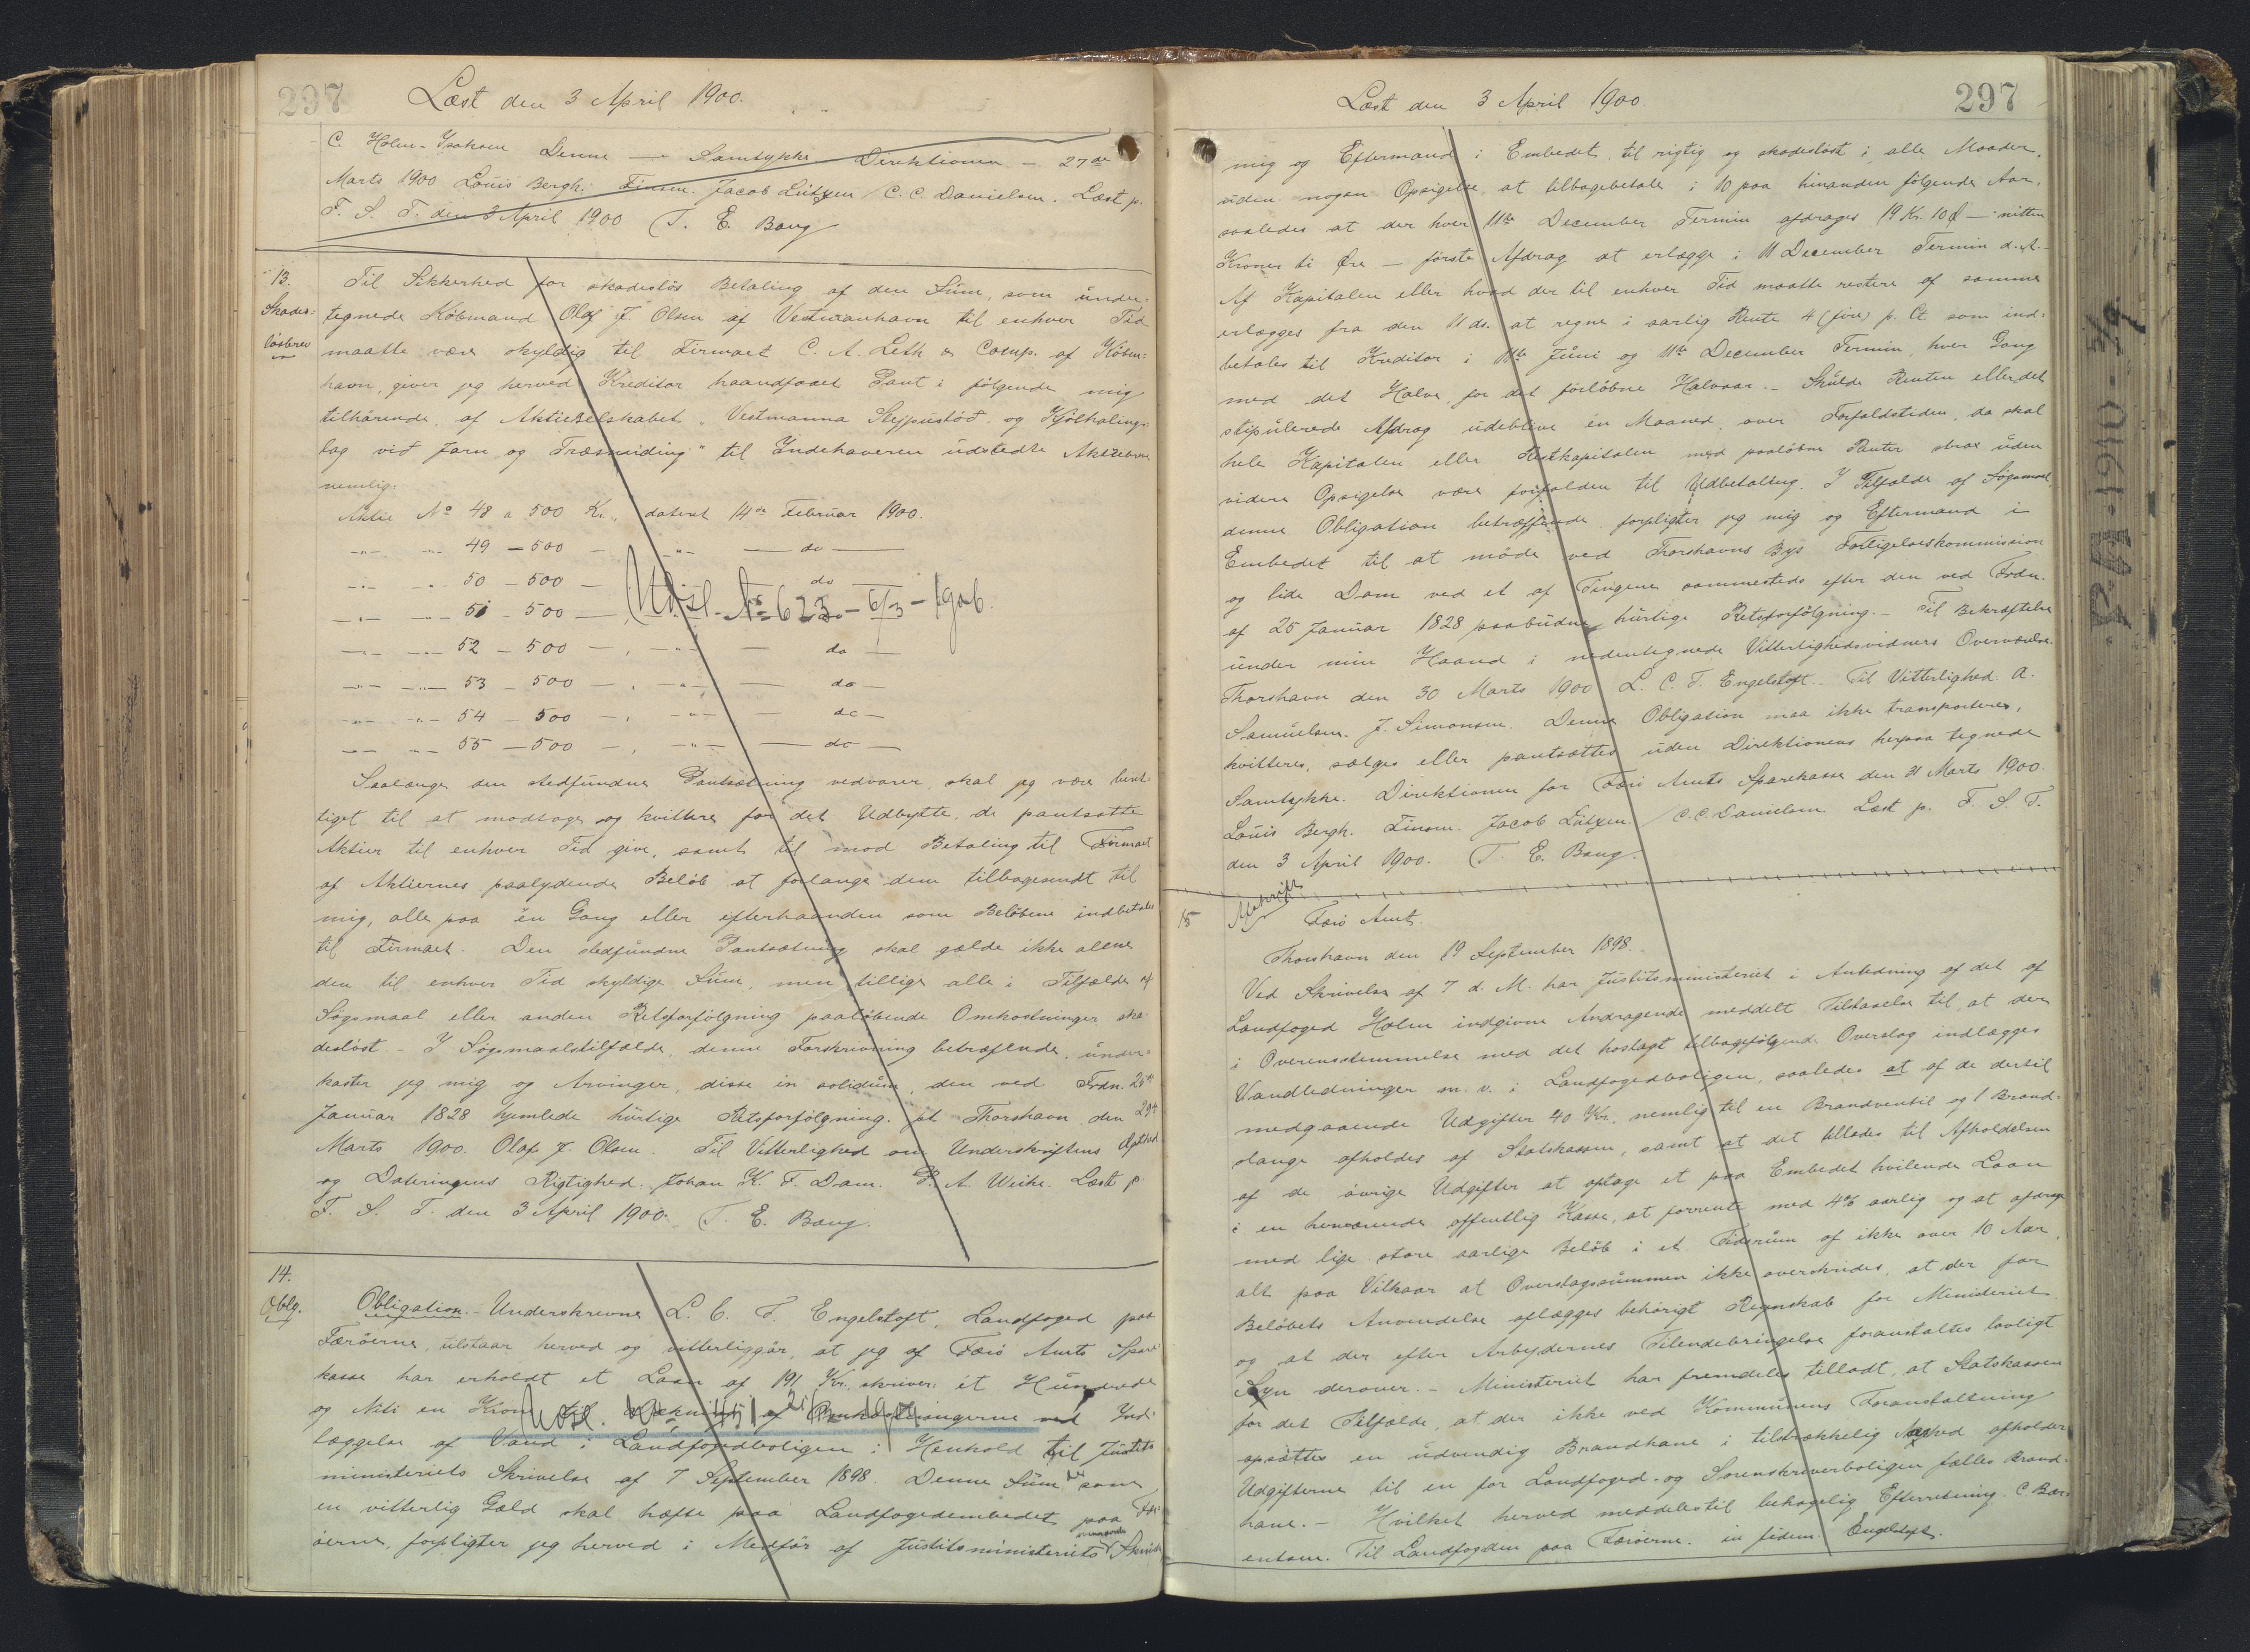 297
Læst den 3 April 1900.
C. Holm-Isaksen Denne — Samtykke Direktionen — 27de
Marts 1900 Louis Bergh. Finsen. Jacob Lützen / C.C. Danielsen. Læst p.
F. S. T. den 3 April 1900 T. E. Bang
13.
Skades:
løsbrev
Til Sikkerhed for skadesløs Betaling af den Sum, som under-
tegnede Købmand Olaf J. Olsen af Vestmanhavn til enhver Tid
maatte være skyldig til Firmaet C. A. Leth & Comp. af Köben-
havn, giver jeg herved Kreditor haandfaaet Pant i følgende mig
tilhørende, af Aktieselskabet "Vestmanna Slejpustöð, og Kjölhalings-
lag við Jarn og Træsmiding" til Indehaveren udstedte Aktiebreve
nemlig:
Aktie No 48 a 500 Kr., dateret 14de Februar 1900.
—"— —"— 49 — 500 — —"— — do —
—"— —"— 50 — 500 — do
—"— —"— 51 — 500 — Udsl. No 623 - 6/3 - 1906.
—"— —"— 52 — 500 — , —"— — do —
—"— —"— 53 — 500 — , —"— — do —
—"— —"— 54 — 500 — , —"— — do —
—"— —"— 55 — 500 — , —"— — do —
Saalænge den stedfundne Pantsætning vedvarer, skal jeg være beret-
tiget til at modtage og kvittere for det Udbytte, de pantsatte
Aktier til enhver Tid give, samt til mod Betaling til Firmaet
af Aktiernes paalydende Beløb at forlange dem tilbagesendt til
mig, alle paa én Gang eller efterhaanden som Beløbene indbetales
til Firmaet. Den stedfundne Pantsætning skal gælde ikke allene
den til enhver Tid skyldige Sum, men tillige alle i Tilfælde af
Søgsmaal eller anden Retsforfölgning paaløbende Omkostninger ska-
desløst. — I Søgsmaalstilfælde, denne Forskrivning betræffende, under-
kaster jeg mig og Arvinger, disse in solidum, den ved Frdn. 25de
Januar 1828 hjemlede hurtige Retsforfölgning. pt Thorshavn den 29de
Marts 1900. Olaf J. Olsen. Til Vitterlighed om Underskriftens Ægthed
og Dateringens Rigtighed. Johan K. F. Dam. P. A. Weihe. Læst p.
F. S. T. den 3 April 1900. T. E. Bang.
14.
Oblg.
Obligation. — Underskrevne L. C. T. Engelstoft, Landfoged paa
Færöerne, tilstaar herved og vitterliggör, at jeg af Færö Amts Spare-
kasse har erholdt et Laan af 191 Kr. skriver: ét Hundrede
og Niti en Krone til af Omkostningerne ved Ind-
Udsl. No 451
læggelse af Vand i Landfogedboligen i Henhold til Justits-
ministeriets Skrivelse af 7 September 1898. Denne Sum som
en vitterlig Gæld skal hæfte paa Landfogedembedet paa Fær-
öerne, forpligter jeg herved i Medför af Justitsministeriets Skrivelse
Læst den 3 April 1900
297
mig og Eftermand i Embedet, til rigtig og skadesløst i alle Maader,
uden nogen Opsigelse, at tilbagebetale i 10 paa hinanden følgende Aar,
saaledes at der hver 11te December Termin afdrages 19 Kr. 10 Ø — nitten
Kroner ti Øre — første Afdrag at erlægge i 11 December Termin d. A. —
Af Kapitalen eller hvad der til enhver Tid maatte restere af samme
erlægges fra den 11 ds. at regne i aarlig Rente 4 (fire) p. Ct som ind-
betales til Kreditor i 11te Juni og 11te December Termin, hver Gang
med det Halve, for det forløbne Halvaar. — Skulde Renten eller det
stipulerede Afdrag udeblive én Maaned over Forfaldstiden, da skal
hele Kapitalen eller Restkapitalen med paaløbne Renter strax uden
videre Opsigelse være forfalden til Udbetaling. I Tilfælde af Søgsmaal,
denne Obligation betræffende, forpligter jeg mig og Eftermand i
Embedet til at möde ved Thorshavns Bys Forligelseskommission
og lide Dom ved et af Tingene sammesteds efter den ved Frdn.
af 25 Januar 1828 paabudne hurtige Retsforfölgning. — Til Bekræftelse
under min Haand i nedentegnede Vitterlighedsvidners Overværelse.
Thorshavn den 30 Marts 1900 L. C. T. Engelstoft. — Til Vitterlighed. A.
Samuelsen. J. Simonsen. Denne Obligation maa ikke transporteres,
kvitteres, sælges eller pantsættes uden Direktionens herpaa tegnede
Samtykke. Direktionen for Færö Amts Sparekasse den 31 Marts 1900.
Louis Bergh. Finsen. Jacob Lützen. / C.C. Danielsen Læst p. F. S. T.
den 3 April 1900. T. E. Bang.
15
Afskrift
Færö Amt.
Thorshavn den 19 September 1898. —
Ved Skrivelse af 7 d. M. har Justitsministeriet i Anledning af det af
Landfoged Holm indgivne Andragende meddelt Tilladelse til, at der
i Overensstemmelse med det hoslagt tilbagefølgende Overslag indlægges
Vandledninger m. v. i Landfogedboligen, saaledes at af de dertil
medgaaende Udgifter 40 Kr., nemlig til en Brandventil og 1 Brand-
slange afholdes af Statskassen, samt at det tillades til Afholdelsen
af de øvrige Udgifter at optage et paa Embedet hvilende Laan
i en henværende offentlig Kasse, at forrente med 4% aarlig og at afdrage
med lige store aarlige Beløb i et Tidsrum af ikke over 10 Aar,
alt paa Vilkaar at Overslagssummen ikke overskrides, at der for
Beløbets Anvendelse aflægges behörigt Regnskab for Ministeriet
og at der efter Arbejdernes Tilendebringelse foranstaltes lovligt
Syn derover. — Ministeriet har fremdeles tilladt, at Statskassen
for det Tilfælde, at der ikke ved Kommunens Foranstaltning
opsættes en udvendig Brandhane i tilstrækkelig Nærhed afholder
Udgifterne til en for Landfoged- og Sorenskriverboligen fælles Brand-
hane. — Hvilket herved meddeles til behagelig Efterretning. C. Bær-
entsen. Til Landfogden paa Færöerne. in fidem. Engelstoft.